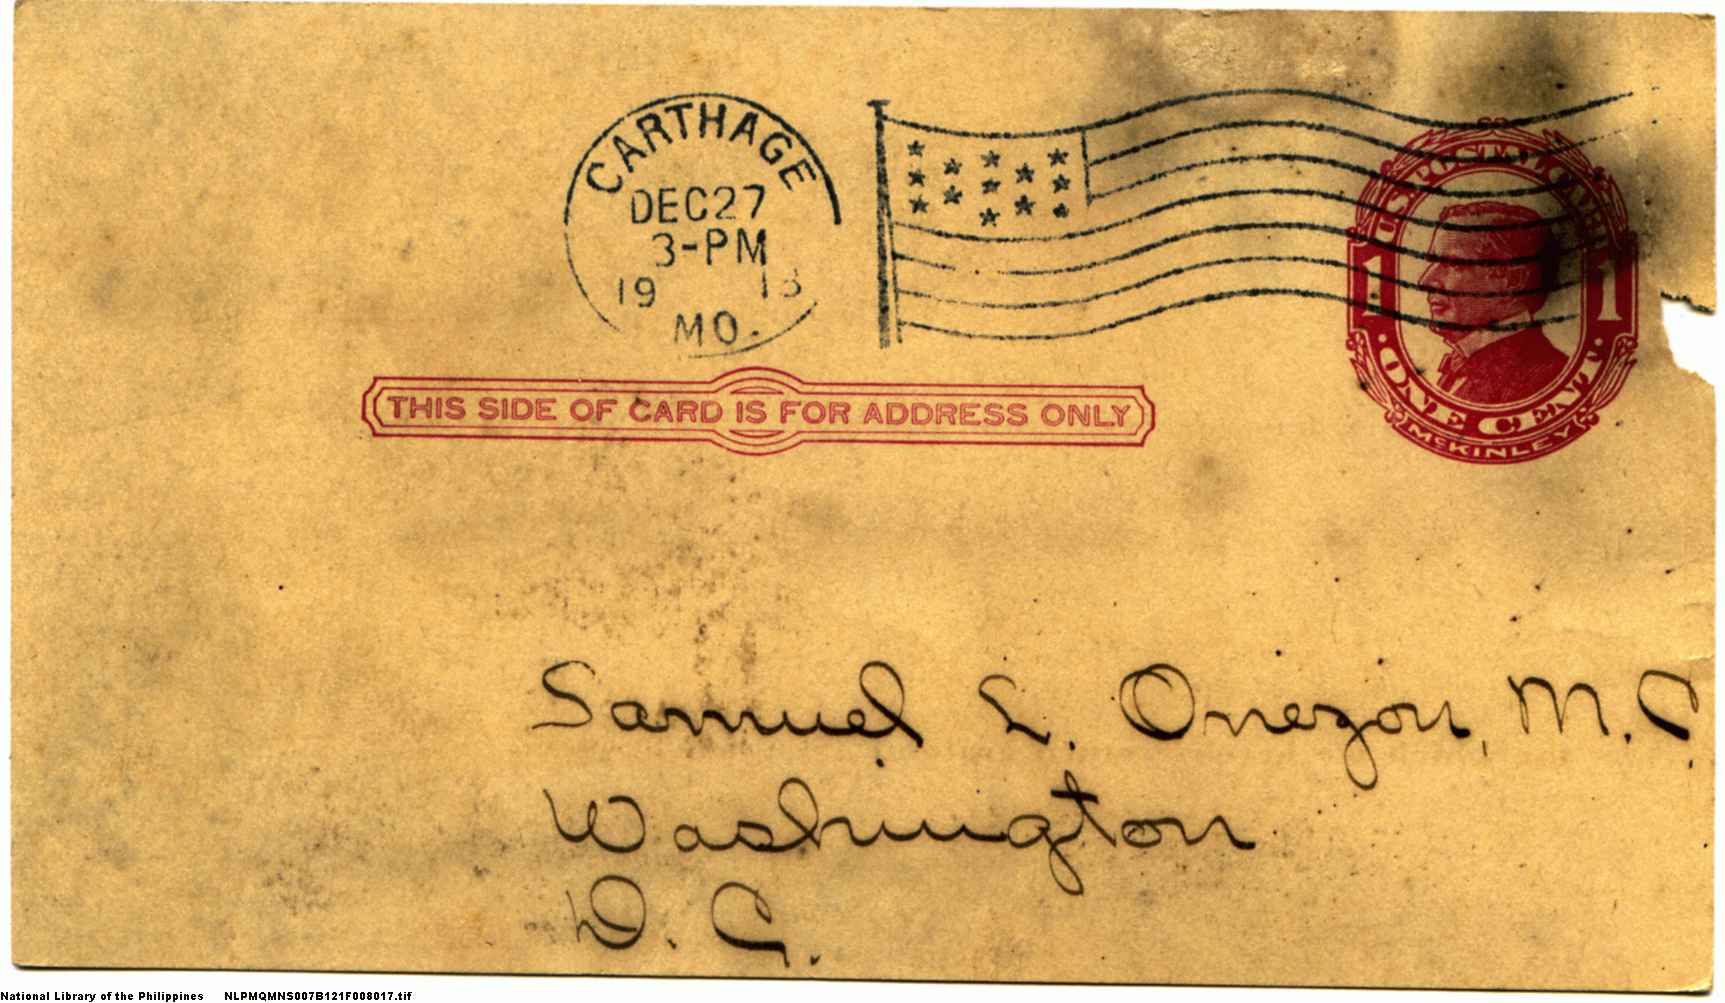 CARTHAGE
DEC 27
3-PM
19 13
MO.
U.S. POSTAL CARD
1 1
· ONE CENT ·
McKINLEY
THIS SIDE OF CARD IS FOR ADDRESS ONLY
Samuel L. Onezon, M.C.
Washington
D. C.
National Library of the Philippines NLPMQMNS007B121F008017.tif